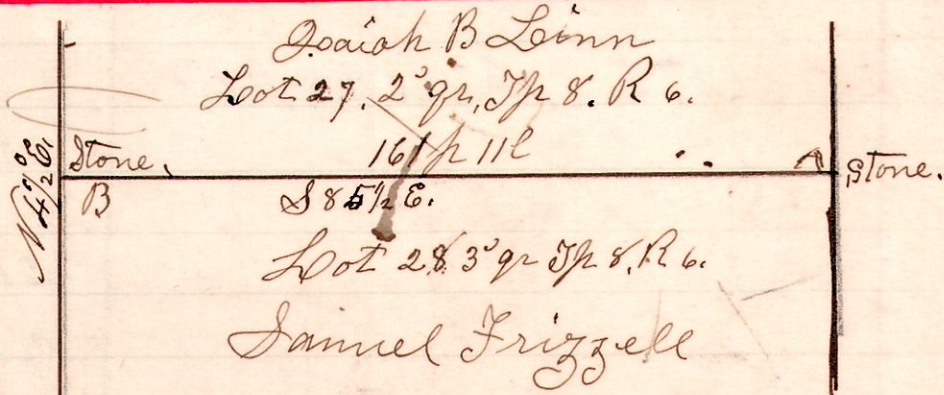 Isaiah B Linn
Lot 27. 2^d qr, Tp 8. R 6.
N 4½° E.
Stone.
161 p 11 l
A
Stone.
B
S 85½ E.
Lot 28. 3^d qr Tp 8, R 6.
Samuel Frizzell